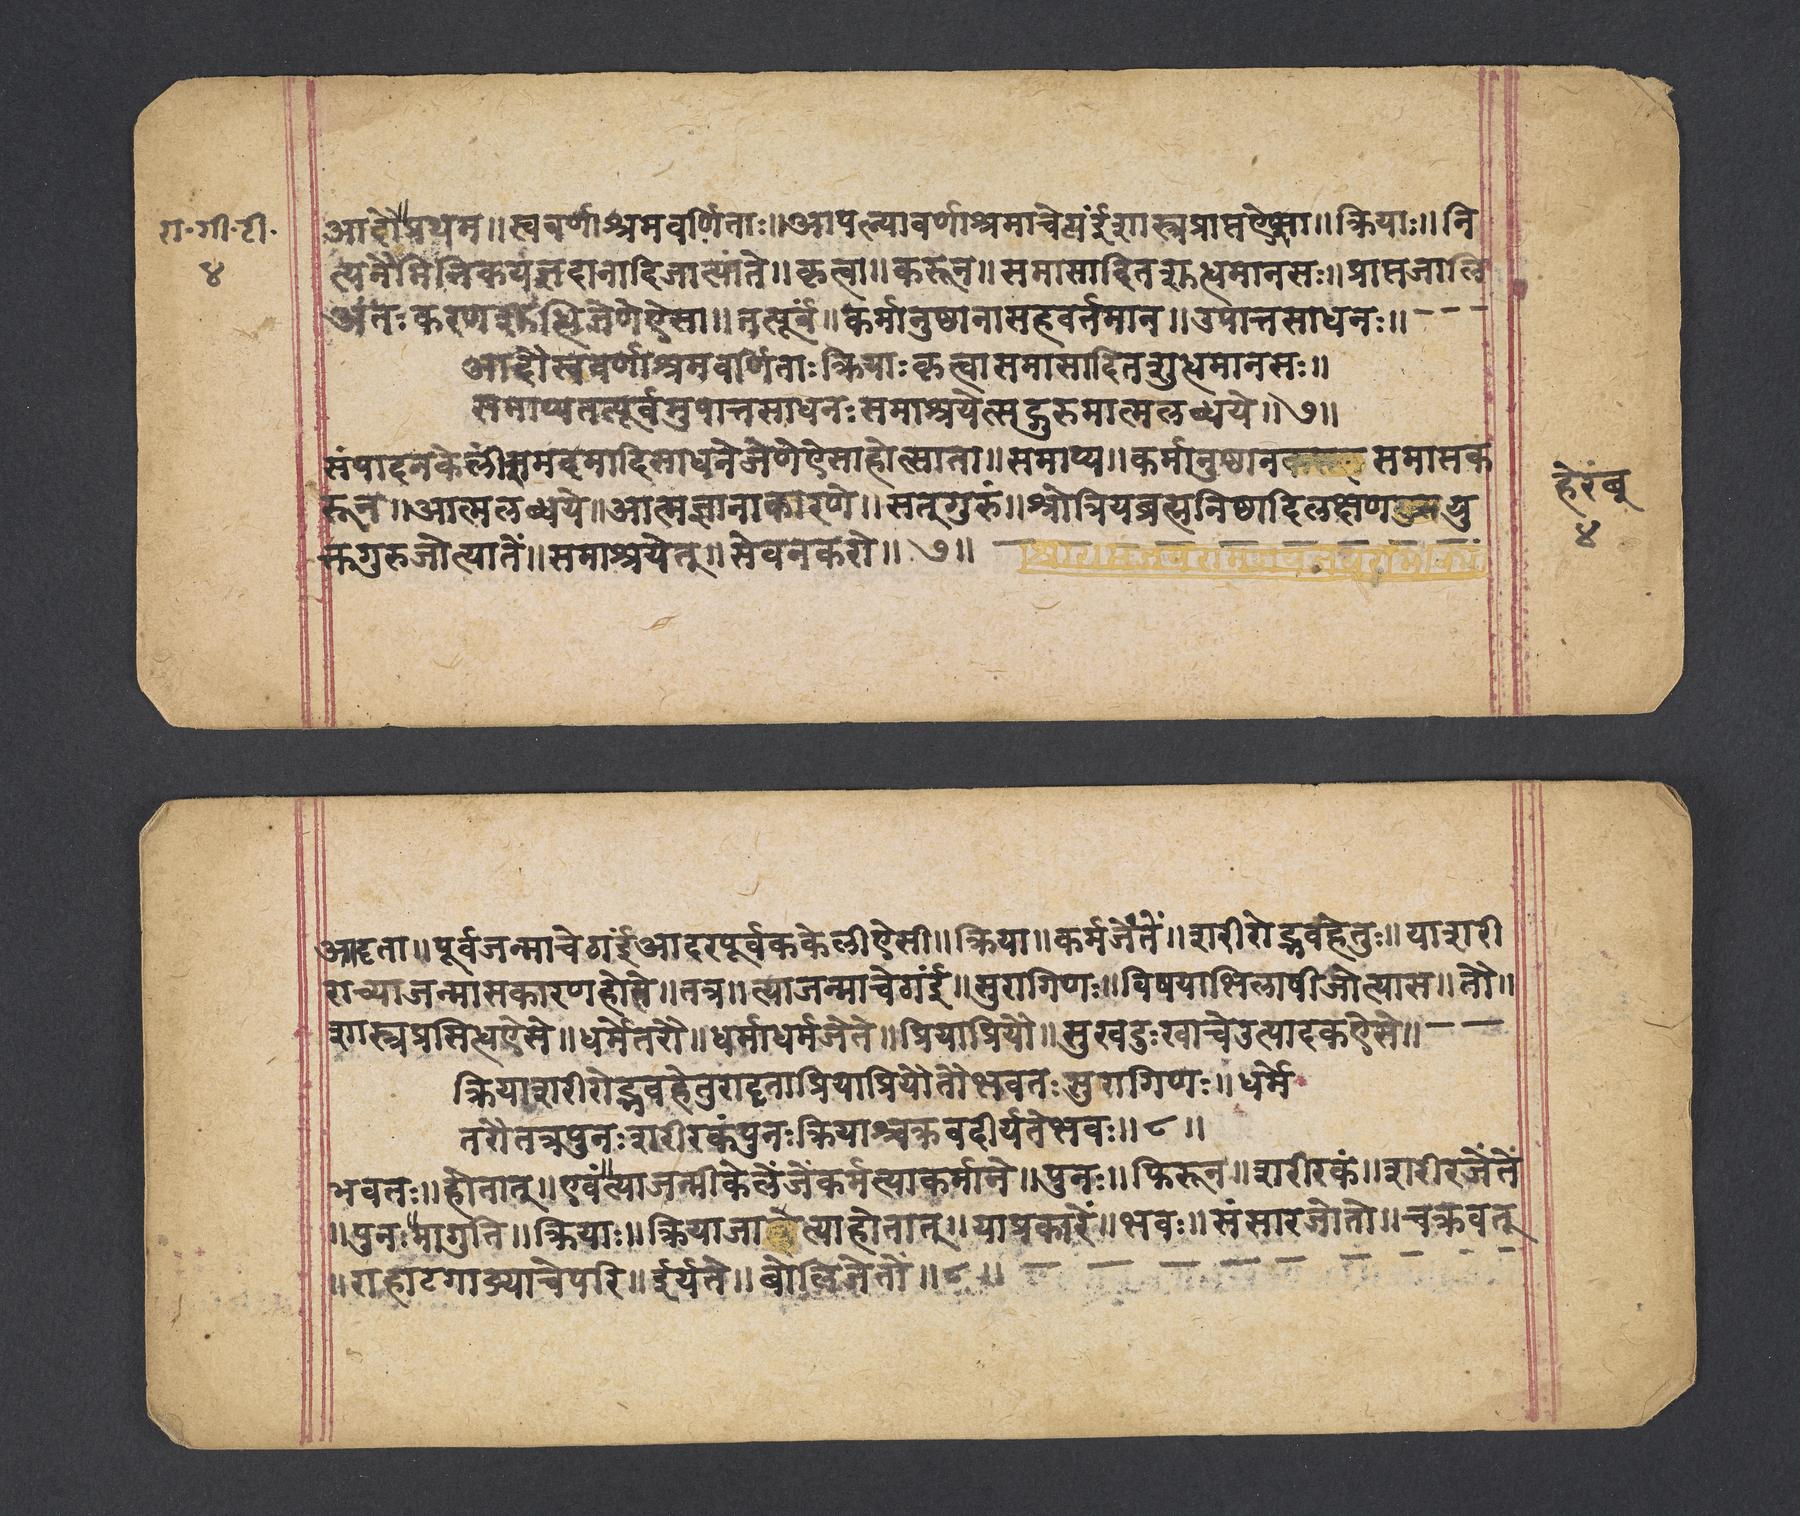 रा॰गी॰टी॰
४
आदौ॥प्रथम॥स्ववर्णाश्रमवर्णिताः॥आपल्यावर्णाश्रमाचेठांईंशास्त्रप्राप्तऐसा॥क्रियाः॥नि
त्यनैमित्तिकयज्ञदानादिजात्यांते॥कृत्वा॥करून॥समासादितशुद्धमानसः॥प्राप्तजालि
अंतःकरणशुद्धिजेणेऐसा॥तत्पूर्वं॥कर्मानुष्ठानासहवर्तमान॥उपात्तसाधनः॥
आदौस्ववर्णाश्रमवर्णिताःक्रियाःकृत्वासमासादितशुद्धमानसः॥
समाप्यतत्पूर्वमुपात्तसाधनःसमाश्रयेत्सद्गुरुमात्मलब्धये॥७॥
संपादनकेलींशमदमादिसाधनेजेणेऐसाहोत्साता॥समाप्य॥कर्मानुष्ठान समाप्तक
रून॥आत्मलब्धये॥आत्मज्ञानाकारणे॥सत्गुरुं॥श्रोत्रियब्रह्मनिष्ठादिलक्षण यु
क्तगुरुजोत्यातें॥समाश्रयेत्॥सेवनकरो॥७॥
हेरंबू
४
आदृता॥पूर्वजन्माचेठांईंआदरपूर्वककेलीऐसी॥क्रिया॥कर्मजेंतें॥शरीरोद्भवहेतुः॥याशरी
राच्याजन्मासकारणहोते॥तत्र॥त्याजन्माचेठांईं॥सुरागिणः॥विषयाभिलाषीजोत्यास॥तौ॥
शास्त्रप्रसिद्धऐसे॥धर्मेतरौ॥धर्माधर्मजेते॥प्रियाप्रियौ॥सुखदुःखाचेउत्पादकऐसे॥
क्रियाशरीरोद्भवहेतुरादृताप्रियाप्रियौतौभवतःसुरागिणः॥धर्मे
तरौतत्रपुनःशरीरकंपुनःक्रियाश्चक्रवदीर्यतेभवः॥८॥
भवतः॥होतात्॥एवं॥त्याजन्मीकेलेंजेंकर्मत्याकर्माने॥पुनः॥फिरून॥शरीरकं॥शरीरजेंतें
॥पुनः॥मागुति॥क्रियाः॥क्रियाजा त्याहोतात्॥याप्रकारें॥भवः॥संसारजोतो॥चक्रवत्
॥राहाटगाड्याचेपरि॥ईर्यते॥बोलिजेतों॥८॥